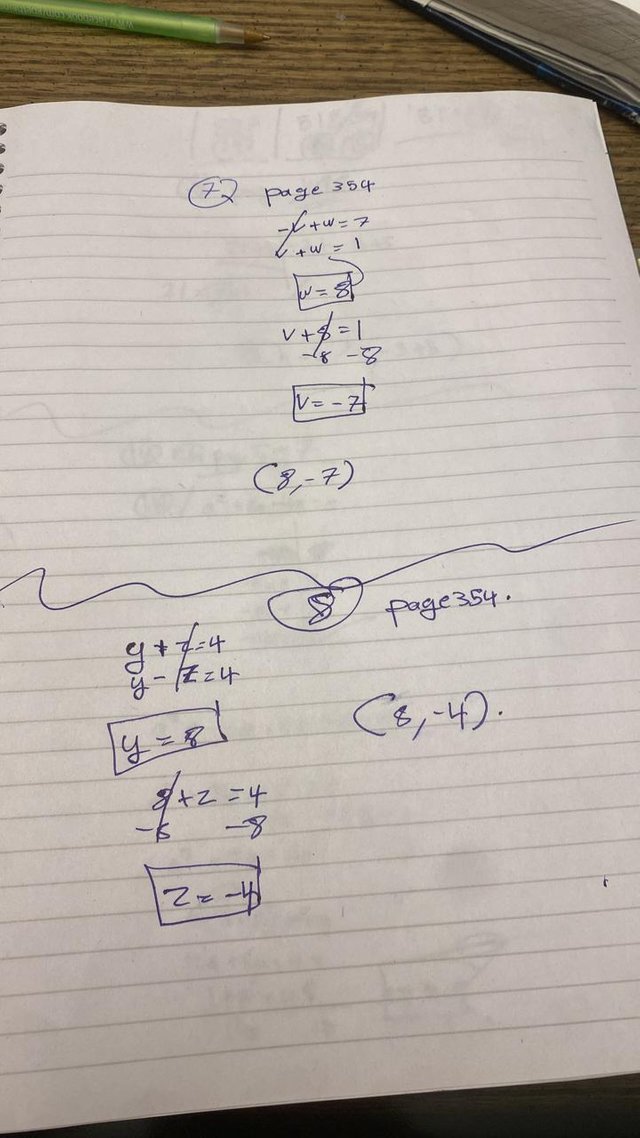 72 page 354
-v+w=7
v+w=1
w=8
v+8=1
-8 -8
v=-7
(8,-7)
8 page 354.
y+z=4
y-z=4
y=8
(8,-4).
8+z=4
-8 -8
z=-4